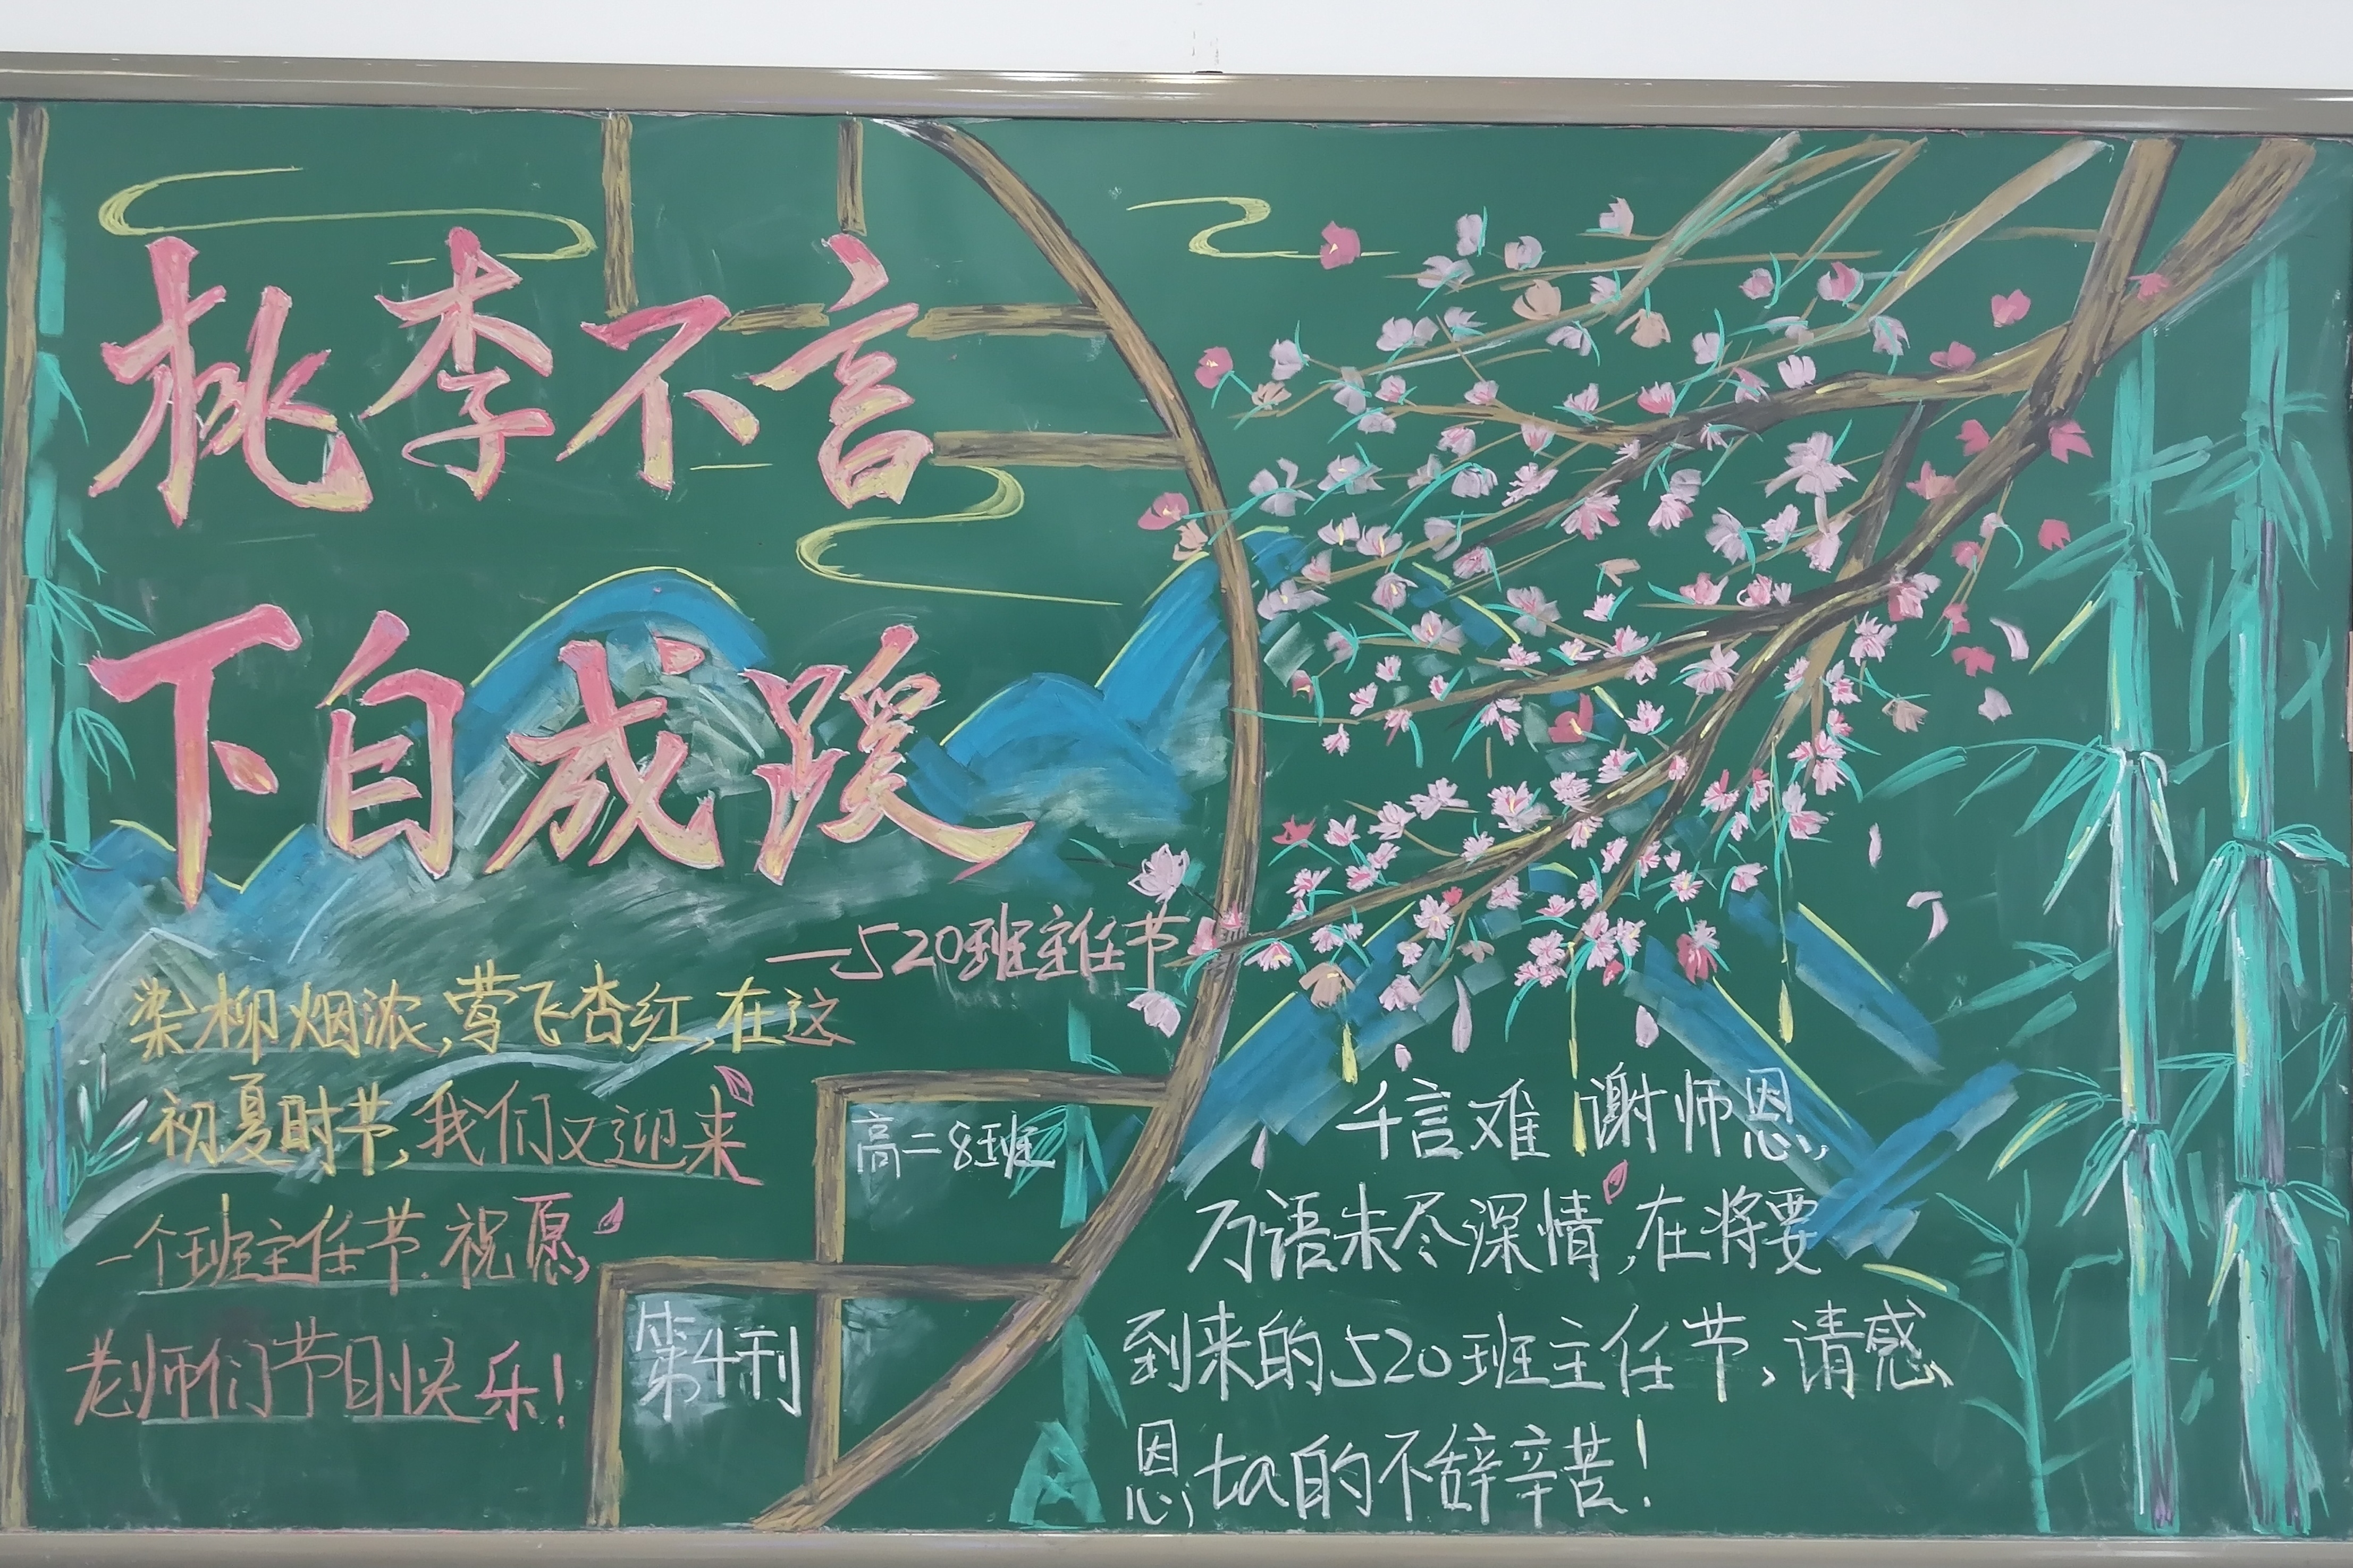 桃李不言
下自成蹊
—520班主任节
染柳烟浓,莺飞杏红,在这
初夏时节,我们又迎来
一个班主任节.祝愿,
老师们节日快乐!
高二8班
第4刊
千言难谢师恩,
万语未尽深情,在将要
到来的520班主任节,请感
恩ta的不辞辛苦!